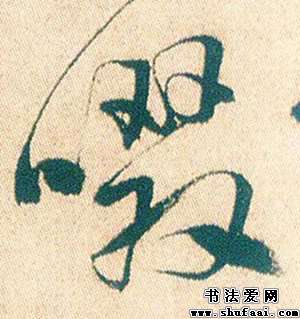 啜
书法爱网
www.shufaai.com